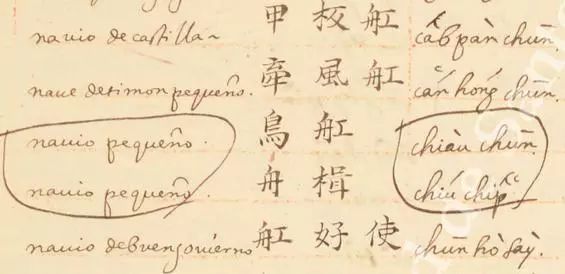 navio de castilla~ 甲板舡 cáb pàn chûn.
naue detimon pequeño. 牽風舡 cán hóng chûn.
navio pequeño. 鳥舡 chiàu chûn.
navio pequeño. 舟楫 chiú chip.
navio debuengovierno 舡好使 chun hò sày.